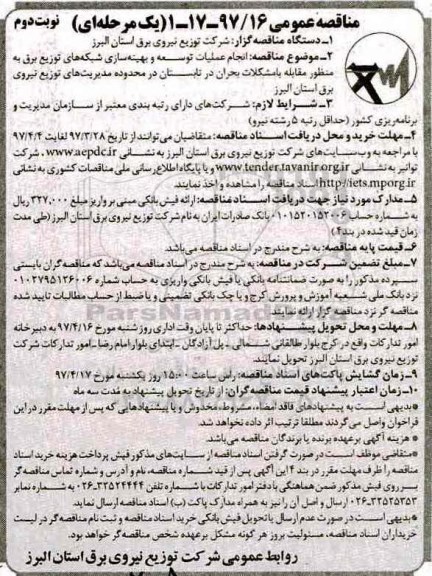 مناقصه عمومی ۹۷/۱۶-۱۷-۱-۱ (یک مرحله‌ای) نوبت دوم
۱- دستگاه مناقصه گزار: شرکت توزیع نیروی برق استان البرز
۲- موضوع مناقصه: انجام عملیات توسعه و بهینه‌سازی شبکه‌های توزیع برق به
منظور مقابله بامشکلات بحران در تابستان در محدوده مدیریت‌های توزیع نیروی
برق استان البرز
۳- شرایط لازم: شرکت‌های دارای رتبه بندی معتبر از سازمان مدیریت و
برنامه‌ریزی کشور (حداقل رتبه ۵ رشته نیرو)
۴- مهلت خرید و محل دریافت اسناد مناقصه: متقاضیان می‌توانند از تاریخ ۹۷/۳/۲۸ لغایت ۹۷/۴/۴
با مراجعه به وب‌سایت‌های شرکت توزیع نیروی برق استان البرز به نشانی www.aepdc.ir، شرکت
توانیر به نشانی www.tender.tavanir.org.ir و یا پایگاه اطلاع رسانی ملی مناقصات کشوری به نشانی
http://iets.mporg.ir اسناد مناقصه را مشاهده و اخذ نمایند.
۵- مدارک مورد نیاز جهت دریافت اسناد مناقصه: ارائه فیش بانکی مبنی بر واریز مبلغ ۳۲۷،۰۰۰ ریال
به شماره حساب ۰۱۰۱۵۲۰۱۵۲۰۰۶ بانک صادرات ایران به نام شرکت توزیع نیروی برق استان البرز (طی مدت
زمان قید شده در بند ۴)
۶- قیمت پایه مناقصه: به شرح مندرج در اسناد مناقصه می‌باشد.
۷- مبلغ تضمین شرکت در مناقصه: به شرح مندرج در اسناد مناقصه می‌باشد که مناقصه گران بایستی
سپرده مذکور را به صورت ضمانتنامه بانکی یا فیش بانکی واریزی به حساب شماره ۰۱۰۲۷۹۵۱۳۶۰۰۶
نزد بانک ملی شعبه آموزش و پرورش کرج و یا چک بانکی تضمینی و یا ضبط از حساب مطالبات تایید شده
مناقصه گر نزد مناقصه گزار ارائه نمایند.
۸- مهلت و محل تحویل پیشنهادها: حداکثر تا پایان وقت اداری روز شنبه مورخ ۹۷/۴/۱۶ به دبیرخانه
امور تدارکات واقع در کرج بلوار طالقانی شمالی - پل آزادگان - ابتدای بلوار امام رضا - امور تدارکات شرکت
توزیع نیروی برق استان البرز تحویل نمایند.
۹- زمان گشایش پاکت‌های اسناد مناقصه: راس ساعت ۱۵:۰۰ روز یکشنبه مورخ ۹۷/۴/۱۷
۱۰- زمان اعتبار پیشنهاد قیمت مناقصه گران: از تاریخ تحویل پیشنهاد به مدت سه ماه
* بدیهی است به پیشنهادهای فاقد امضاء، مشروط، مخدوش و یا پیشنهادهایی که پس از مهلت مقرر در این
فراخوان واصل می‌گردند مطلقا ترتیب اثر داده نخواهد شد.
* هزینه آگهی برعهده برنده یا برندگان مناقصه می‌باشد.
* متقاضی موظف است در صورت گرفتن اسناد مناقصه از سایت‌های مذکور فیش پرداخت هزینه خرید اسناد
مناقصه را ظرف مهلت مقرر در بند ۴ این آگهی پس از قید شماره مناقصه، نام و آدرس و شماره تماس مناقصه گر
بر روی فیش مذکور ضمن هماهنگی با دفتر امور تدارکات با شماره تلفن ۳۳۵۲۴۴۴۴-۰۲۶ به شماره نمابر
۳۳۵۲۵۳۵۳-۰۲۶ ارسال و اصل آن را نیز به همراه مدارک پاکت (ب) اسناد مناقصه ارسال نماید.
* بدیهی است در صورت عدم ارسال یا تحویل فیش بانکی خرید اسناد مناقصه و ثبت نام مناقصه گر در لیست
خریداران اسناد مناقصه، مسئولیت بروز هر گونه مشکل برعهده شخص مناقصه گر خواهد بود.
روابط عمومی شرکت توزیع نیروی برق استان البرز